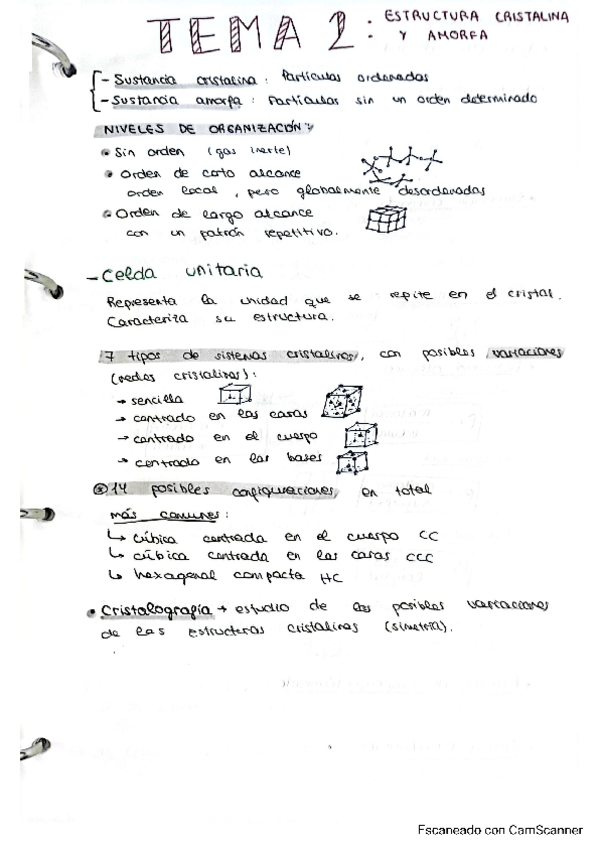 TEMA 2: ESTRUCTURA CRISTALINA
Y AMORFA
- Sustancia cristalina : Partículas ordenadas
- Sustancia amorfa : Partículas sin un orden determinado
NIVELES DE ORGANIZACIÓN:
• Sin orden (gas inerte)
• Orden de corto alcance
orden local, pero globalmente desordenadas
• Orden de largo alcance
con un patrón repetitivo.
- Celda unitaria
Representa la unidad que se repite en el cristal.
Caracteriza su estructura.
7 tipos de sistemas cristalinos, con posibles variaciones
(redes cristalinas):
→ sencilla
→ centrado en las caras
→ centrado en el cuerpo
→ centrado en las bases
14 posibles configuraciones en total
más comunes:
↳ cúbica centrada en el cuerpo CC
↳ cúbica centrada en las caras CCC
↳ hexagonal compacta HC
• Cristalografía → estudio de las posibles variaciones
de las estructuras cristalinas (simetría).
Escaneado con CamScanner